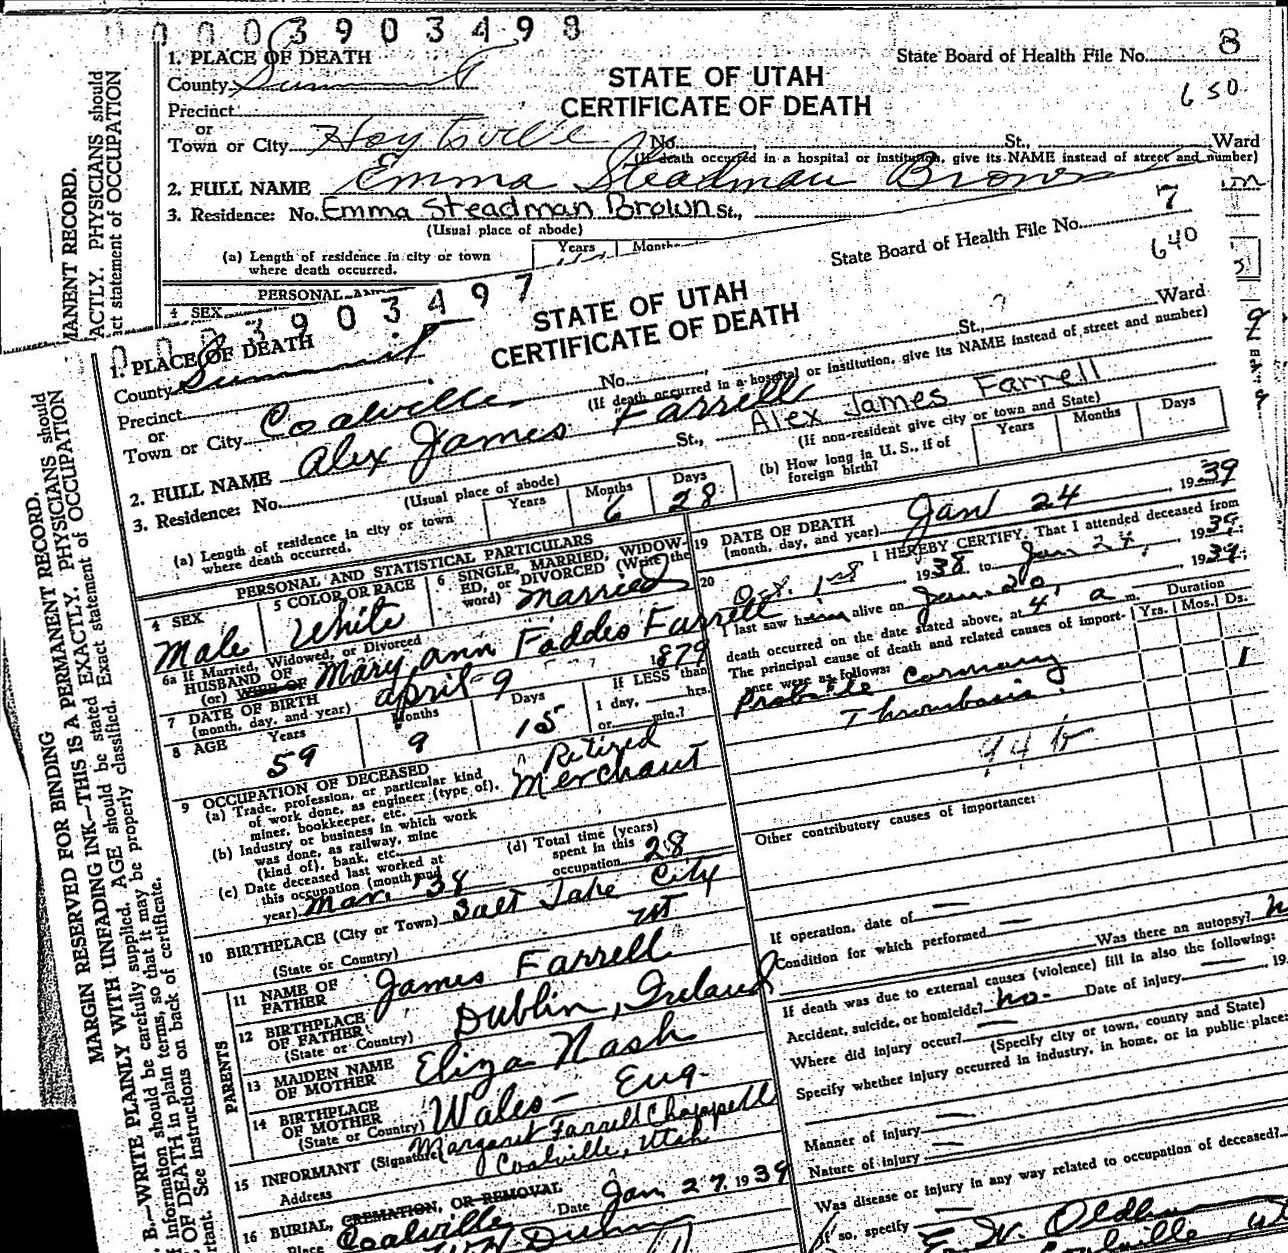 0003903498
8
State Board of Health File No.
650
1. PLACE OF DEATH
STATE OF UTAH
CERTIFICATE OF DEATH
County Summit
Precinct
or
Town or City Hoytsville No. St., Ward
(If death occurred in a hospital or institution, give its NAME instead of street and number)
2. FULL NAME Emma Steadman Brown
3. Residence: No. Emma Steadman Brown St.,
(Usual place of abode)
(a) Length of residence in city or town
where death occurred.
Years Months
PERSONAL AN
4 SEX
MANENT RECORD.
ACTLY. PHYSICIANS should
ct statement of OCCUPATION
0003903497
7
State Board of Health File No.
640
1. PLACE OF DEATH
STATE OF UTAH
CERTIFICATE OF DEATH
County Summit
Precinct
or
Town or City Coalville No. St., Ward
(If death occurred in a hospital or institution, give its NAME instead of street and number)
2. FULL NAME Alex James Farrell
Alex James Farrell
3. Residence: No. St.,
(Usual place of abode)
(If non-resident give city or town and State)
(a) Length of residence in city or town
where death occurred.
Years Months 6 Days 28
(b) How long in U. S., if of
foreign birth?
Years Months Days
PERSONAL AND STATISTICAL PARTICULARS
4 SEX
Male
5 COLOR OR RACE
White
6 SINGLE, MARRIED, WIDOW-
ED, or DIVORCED (Write the
word) Married
6a If Married, Widowed, or Divorced
HUSBAND OF
(or) WIFE OF Mary Ann Faddes Farrell
7 DATE OF BIRTH
(month, day, and year) April 9 1879
8 AGE Years 59 Months 9 Days 15
If LESS than
1 day, hrs.
or min.?
9 OCCUPATION OF DECEASED
(a) Trade, profession, or particular kind
of work done, as engineer (type of),
miner, bookkeeper, etc.
Retired
Merchant
(b) Industry or business in which work
was done, as railway, mine
(kind of), bank, etc.
(c) Date deceased last worked at
this occupation (month and
year) Mar. '38
(d) Total time (years)
spent in this
occupation 28
10 BIRTHPLACE (City or Town) Salt Lake City
(State or Country) Ut
PARENTS
11 NAME OF
FATHER James Farrell
12 BIRTHPLACE
OF FATHER
(State or Country) Dublin, Ireland
13 MAIDEN NAME
OF MOTHER Eliza Nash
14 BIRTHPLACE
OF MOTHER
(State or Country) Wales - Eng.
15 INFORMANT (Signature) Margaret Farrell Chappell
Address Coalville, Utah
16 BURIAL, CREMATION, OR REMOVAL
Place Coalville Date Jan 27, 1939
19 DATE OF DEATH
(month, day, and year) Jan 24, 1939
20 I HEREBY CERTIFY, That I attended deceased from
Oct. 1st 1938 to Jan 24, 1939
I last saw him alive on Jan. 20, 1939;
death occurred on the date stated above, at 4 a m.
The principal cause of death and related causes of import-
ance were as follows:
Duration
Yrs. Mos. Ds.
Probable Coronary
Thrombosis.
1
94 b
Other contributory causes of importance:
If operation, date of
Condition for which performed
Was there an autopsy?
If death was due to external causes (violence) fill in also the following:
Accident, suicide, or homicide? no. Date of injury 19
Where did injury occur?
(Specify city or town, county and State)
Specify whether injury occurred in industry, in home, or in public place
Manner of injury
Nature of injury
Was disease or injury in any way related to occupation of deceased?
If so, specify
E. W. Oldham
Coalville Ut
MARGIN RESERVED FOR BINDING
B.—WRITE PLAINLY WITH UNFADING INK—THIS IS A PERMANENT RECORD.
information should be carefully supplied. AGE should be stated EXACTLY. PHYSICIANS should
OF DEATH in plain terms, so that it may be properly classified. Exact statement of OCCUPATION
rtant. See instructions on back of certificate.